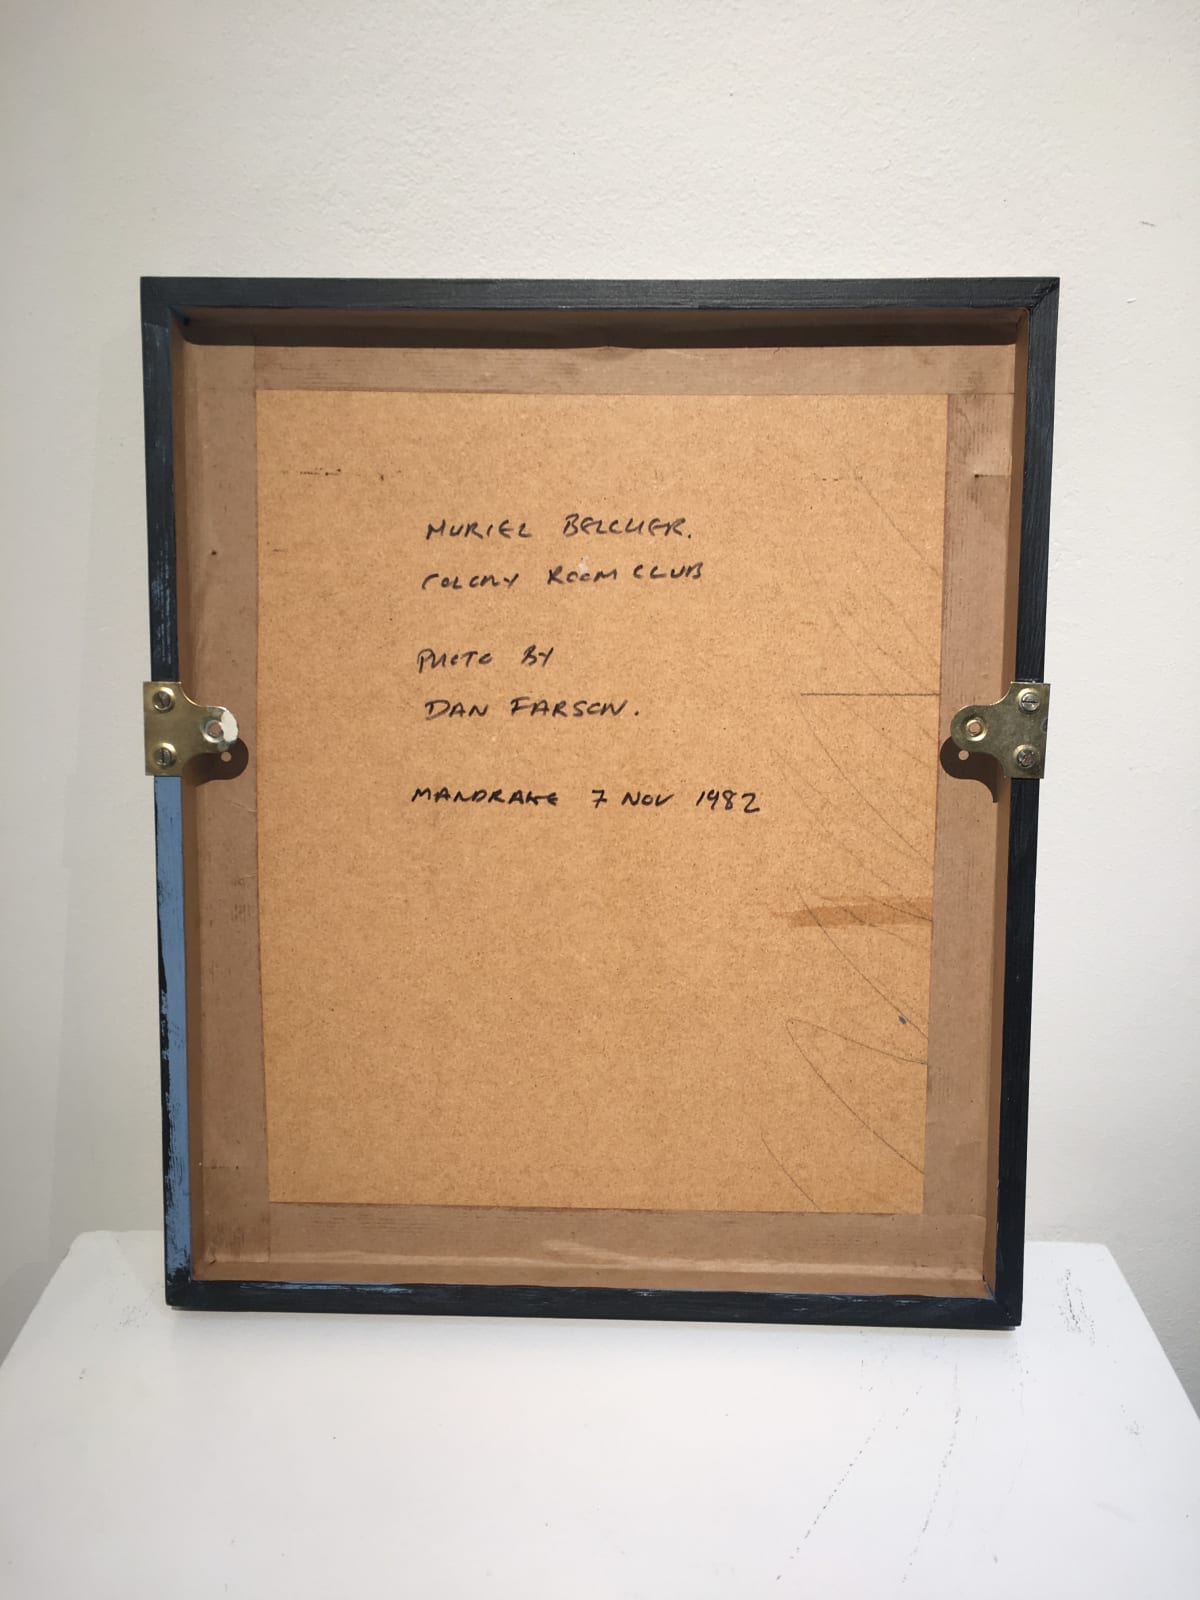 MURIEL BELCHER.
COLONY ROOM CLUB
PHOTO BY
DAN FARSON.
MANDRAKE 7 NOV 1982